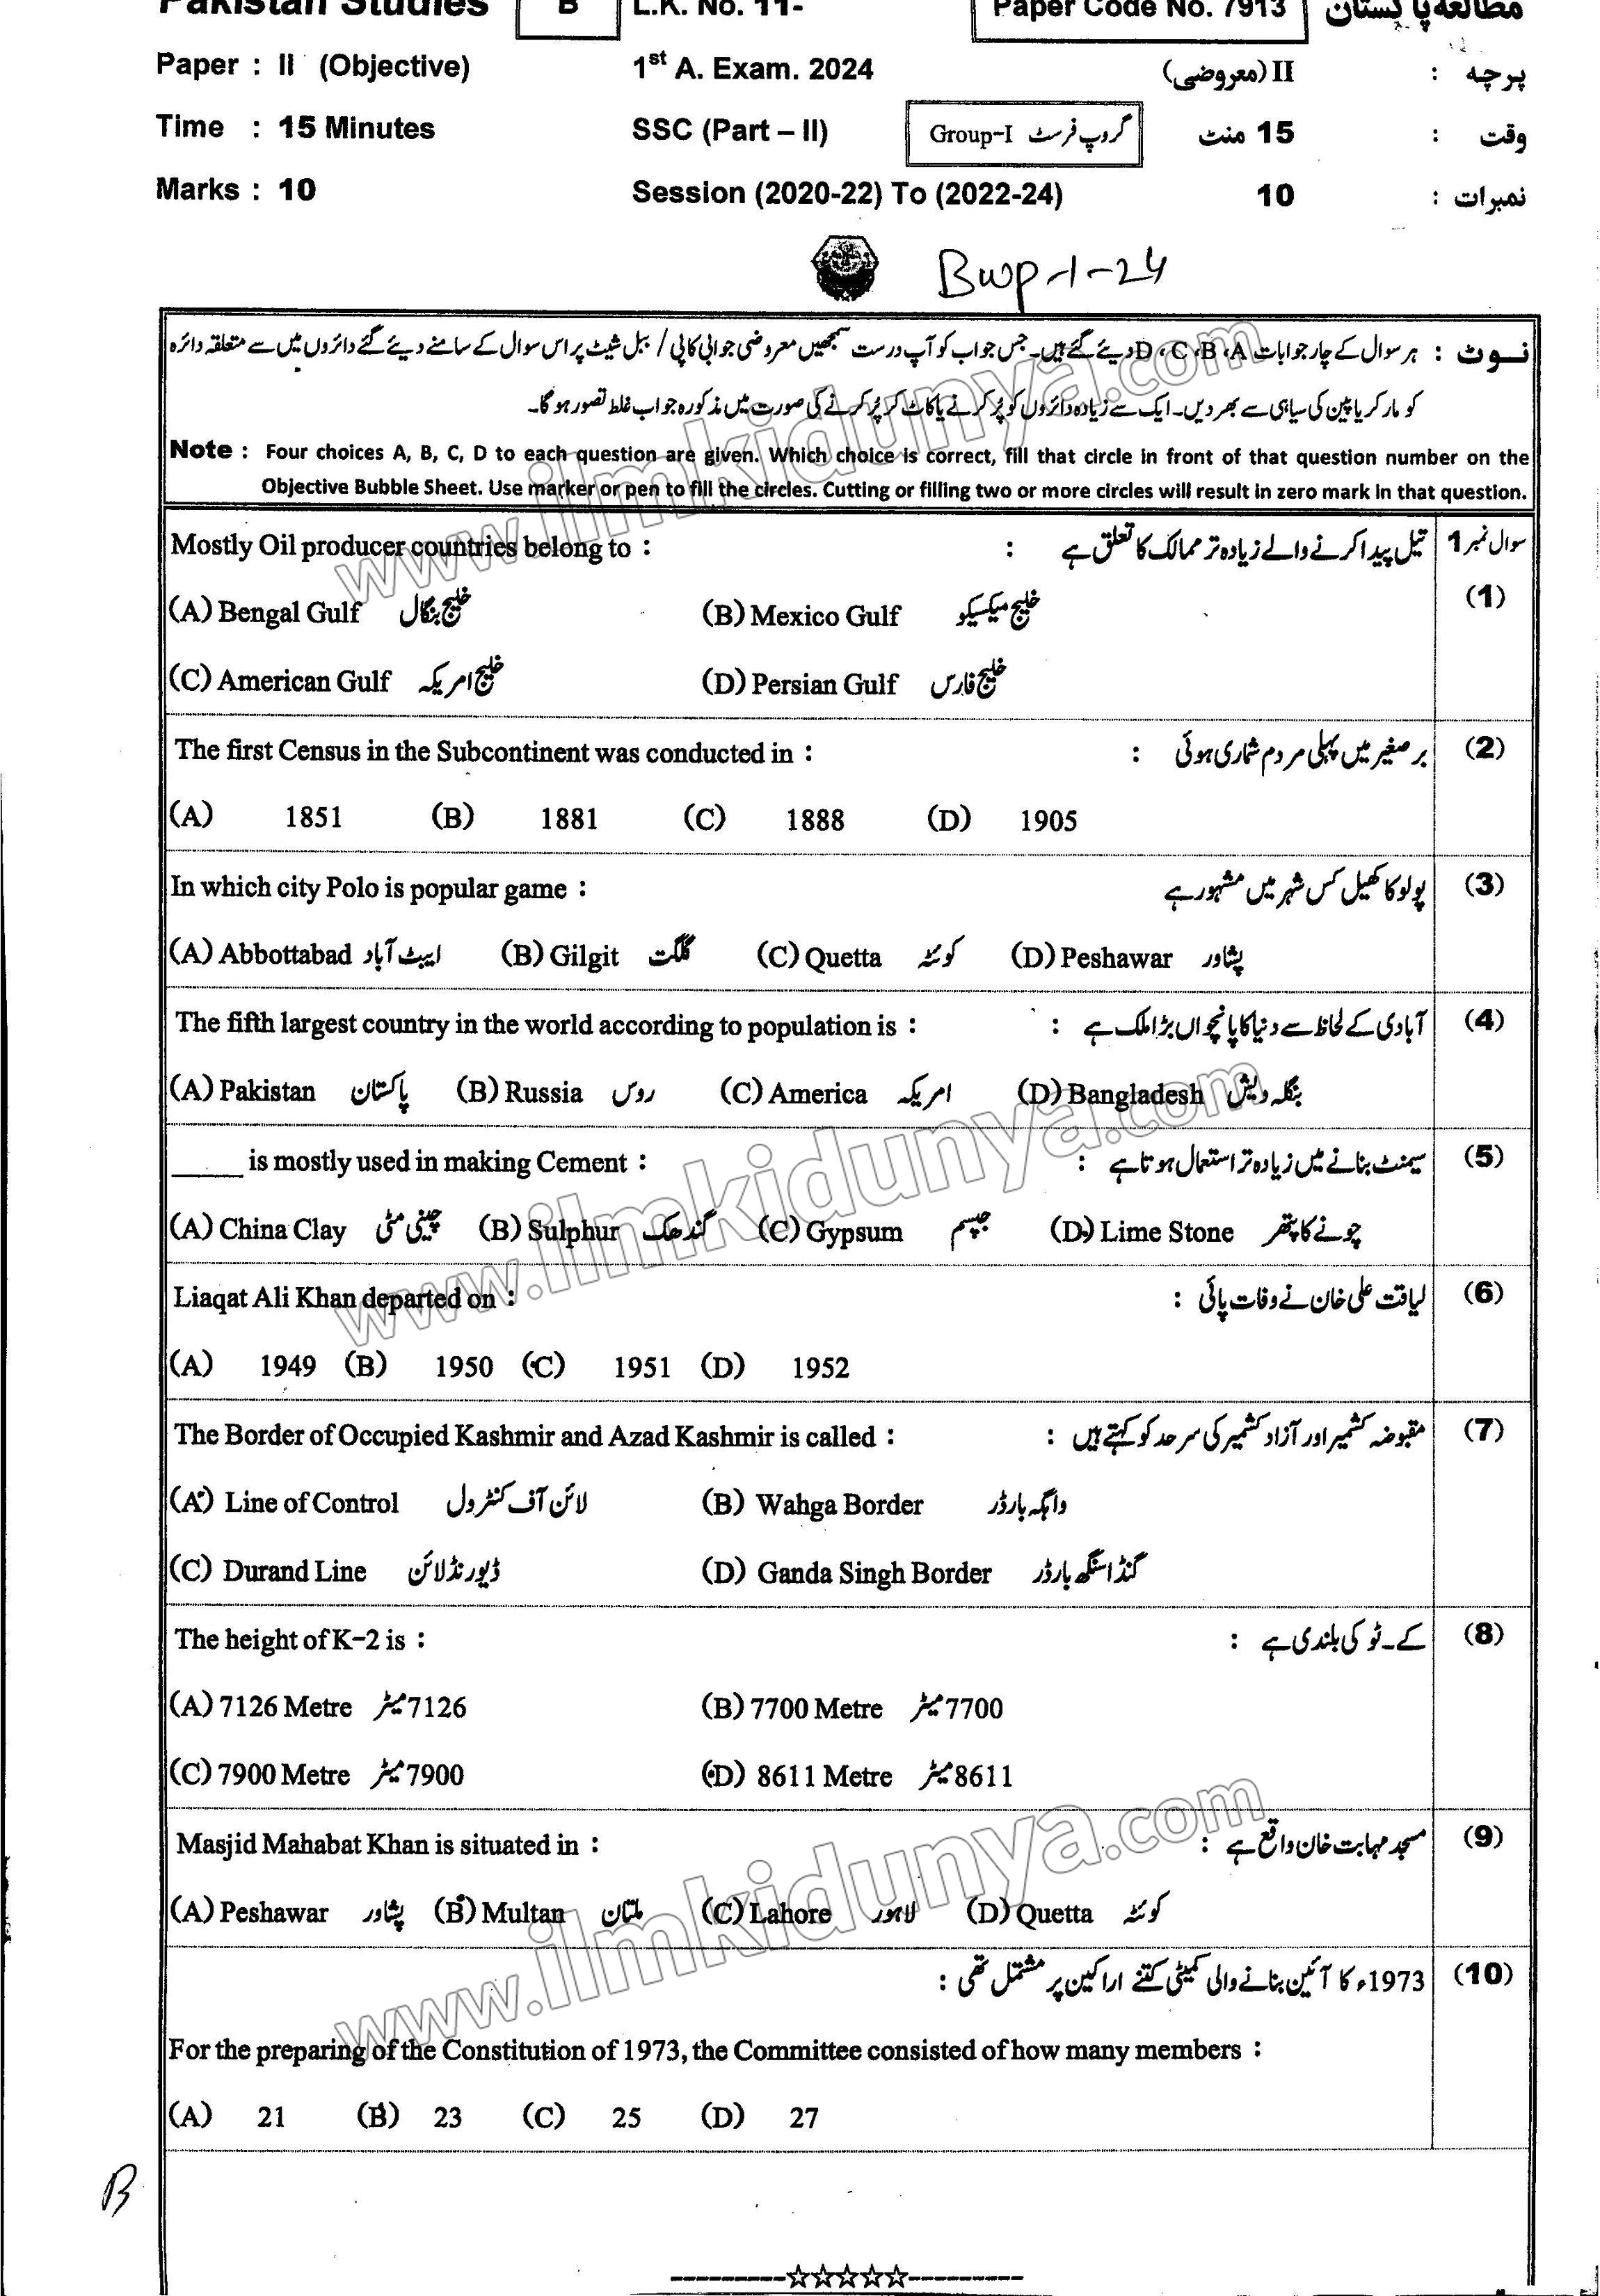 Pakistan Studies B L.K. No. 11- Paper Code No. 7913 مطالعہ پاکستان
Paper : II (Objective) 1st A. Exam. 2024 II (معروضی) پرچہ :
Time : 15 Minutes SSC (Part – II) Group-I گروپ فرسٹ 15 منٹ وقت :
Marks : 10 Session (2020-22) To (2022-24) 10 نمبرات :
Bwp-1-24
نوٹ : ہر سوال کے چار جوابات A، B، C، D دیئے گئے ہیں۔ جس جواب کو آپ درست سمجھیں معروضی جوابی کاپی / ببل شیٹ پر اس سوال کے سامنے دیئے گئے دائروں میں سے متعلقہ دائرہ
کو مارکر یا پین کی سیاہی سے بھر دیں۔ ایک سے زیادہ دائروں کو پُر کرنے یا کاٹ کر پُر کرنے کی صورت میں مذکورہ جواب غلط تصور ہوگا۔
Note : Four choices A, B, C, D to each question are given. Which choice is correct, fill that circle in front of that question number on the
Objective Bubble Sheet. Use marker or pen to fill the circles. Cutting or filling two or more circles will result in zero mark in that question.
Mostly Oil producer countries belong to : تیل پیدا کرنے والے زیادہ تر ممالک کا تعلق ہے : سوال نمبر 1
(1)
(A) Bengal Gulf خلیج بنگال (B) Mexico Gulf خلیج میکسیکو
(C) American Gulf خلیج امریکہ (D) Persian Gulf خلیج فارس
The first Census in the Subcontinent was conducted in : برصغیر میں پہلی مردم شماری ہوئی : (2)
(A) 1851 (B) 1881 (C) 1888 (D) 1905
In which city Polo is popular game : پولو کا کھیل کس شہر میں مشہور ہے (3)
(A) Abbottabad ایبٹ آباد (B) Gilgit گلگت (C) Quetta کوئٹہ (D) Peshawar پشاور
The fifth largest country in the world according to population is : آبادی کے لحاظ سے دنیا کا پانچواں بڑا ملک ہے : (4)
(A) Pakistan پاکستان (B) Russia روس (C) America امریکہ (D) Bangladesh بنگلہ دیش
_____ is mostly used in making Cement : سیمنٹ بنانے میں زیادہ تر استعمال ہوتا ہے : (5)
(A) China Clay چینی مٹی (B) Sulphur گندھک (C) Gypsum جپسم (D) Lime Stone چونے کا پتھر
Liaqat Ali Khan departed on : لیاقت علی خان نے وفات پائی : (6)
(A) 1949 (B) 1950 (C) 1951 (D) 1952
The Border of Occupied Kashmir and Azad Kashmir is called : مقبوضہ کشمیر اور آزاد کشمیر کی سرحد کو کہتے ہیں : (7)
(A) Line of Control لائن آف کنٹرول (B) Wahga Border واہگہ بارڈر
(C) Durand Line ڈیورنڈ لائن (D) Ganda Singh Border گنڈا سنگھ بارڈر
The height of K-2 is : کے۔ٹو کی بلندی ہے : (8)
(A) 7126 Metre 7126 میٹر (B) 7700 Metre 7700 میٹر
(C) 7900 Metre 7900 میٹر (D) 8611 Metre 8611 میٹر
Masjid Mahabat Khan is situated in : مسجد مہابت خان واقع ہے : (9)
(A) Peshawar پشاور (B) Multan ملتان (C) Lahore لاہور (D) Quetta کوئٹہ
1973ء کا آئین بنانے والی کمیٹی کتنے اراکین پر مشتمل تھی : (10)
For the preparing of the Constitution of 1973, the Committee consisted of how many members :
(A) 21 (B) 23 (C) 25 (D) 27
B
www.ilmkidunya.com
www.ilmkidunya.com
www.ilmkidunya.com